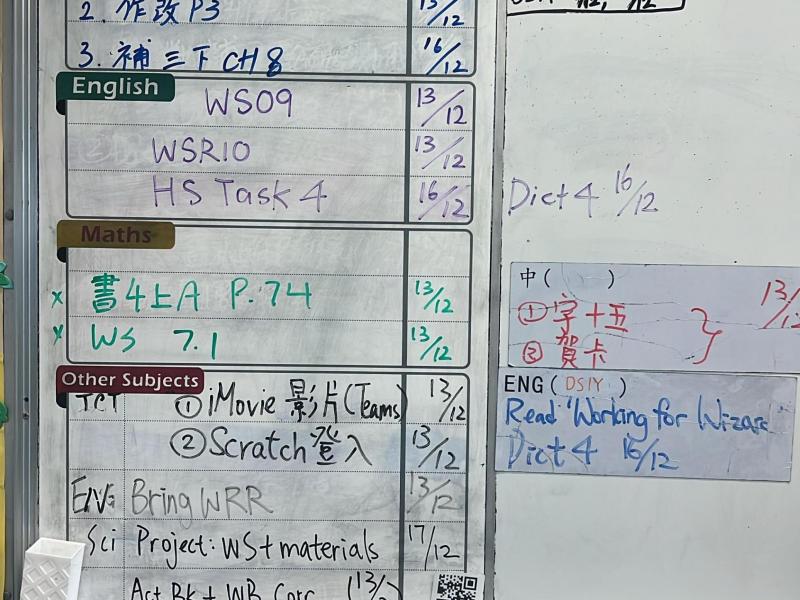 2. 作改 P3 13/12
3. 補 三下 CH8 16/12
English
WS09 13/12
WSR10 13/12
HS Task 4 16/12
Dict 4 16/12
Maths
x 書4上A P.74 13/12
x WS 7.1 13/12
中( )
① 字十五 13/12
③ 賀卡
Other Subjects
ICT ① iMovie 影片(Teams) 13/12
② Scratch 登入 13/12
ENG Bring WRR 13/12
Sci Project: WS + materials 17/12
Act Bk + WB Corr
ENG ( DSIY )
Read 'Working for Wizard
Dict 4 16/12